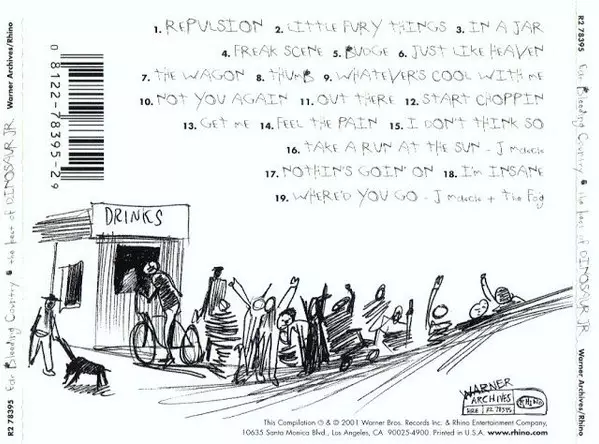 1. REPULSION 2. LITTLE FURY THINGS 3. IN A JAR
4. FREAK SCENE 5. BUDGE 6. JUST LIKE HEAVEN
7. THE WAGON 8. THUMB 9. WHATEVER'S COOL WITH ME
10. NOT YOU AGAIN 11. OUT THERE 12. START CHOPPIN
13. GET ME 14. FEEL THE PAIN 15. I DON'T THINK SO
16. TAKE A RUN AT THE SUN - J Mascis
17. NOTHIN'S GOIN' ON 18. I'M INSANE
19. WHERE'D YOU GO - J Mascis + The Fog
DRINKS
WARNER
ARCHIVES
RHINO
R2 78395
This Compilation ℗ & © 2001 Warner Bros. Records Inc. & Rhino Entertainment Company,
10635 Santa Monica Blvd., Los Angeles, CA 90025-4900. Printed in U.S.A. www.rhino.com
0 81227-8395-2 9
R2 78395 Ear Bleeding Country • the best of DINOSAUR JR. Warner Archives/Rhino
R2 78395 Ear Bleeding Country • the best of DINOSAUR JR. Warner Archives/Rhino